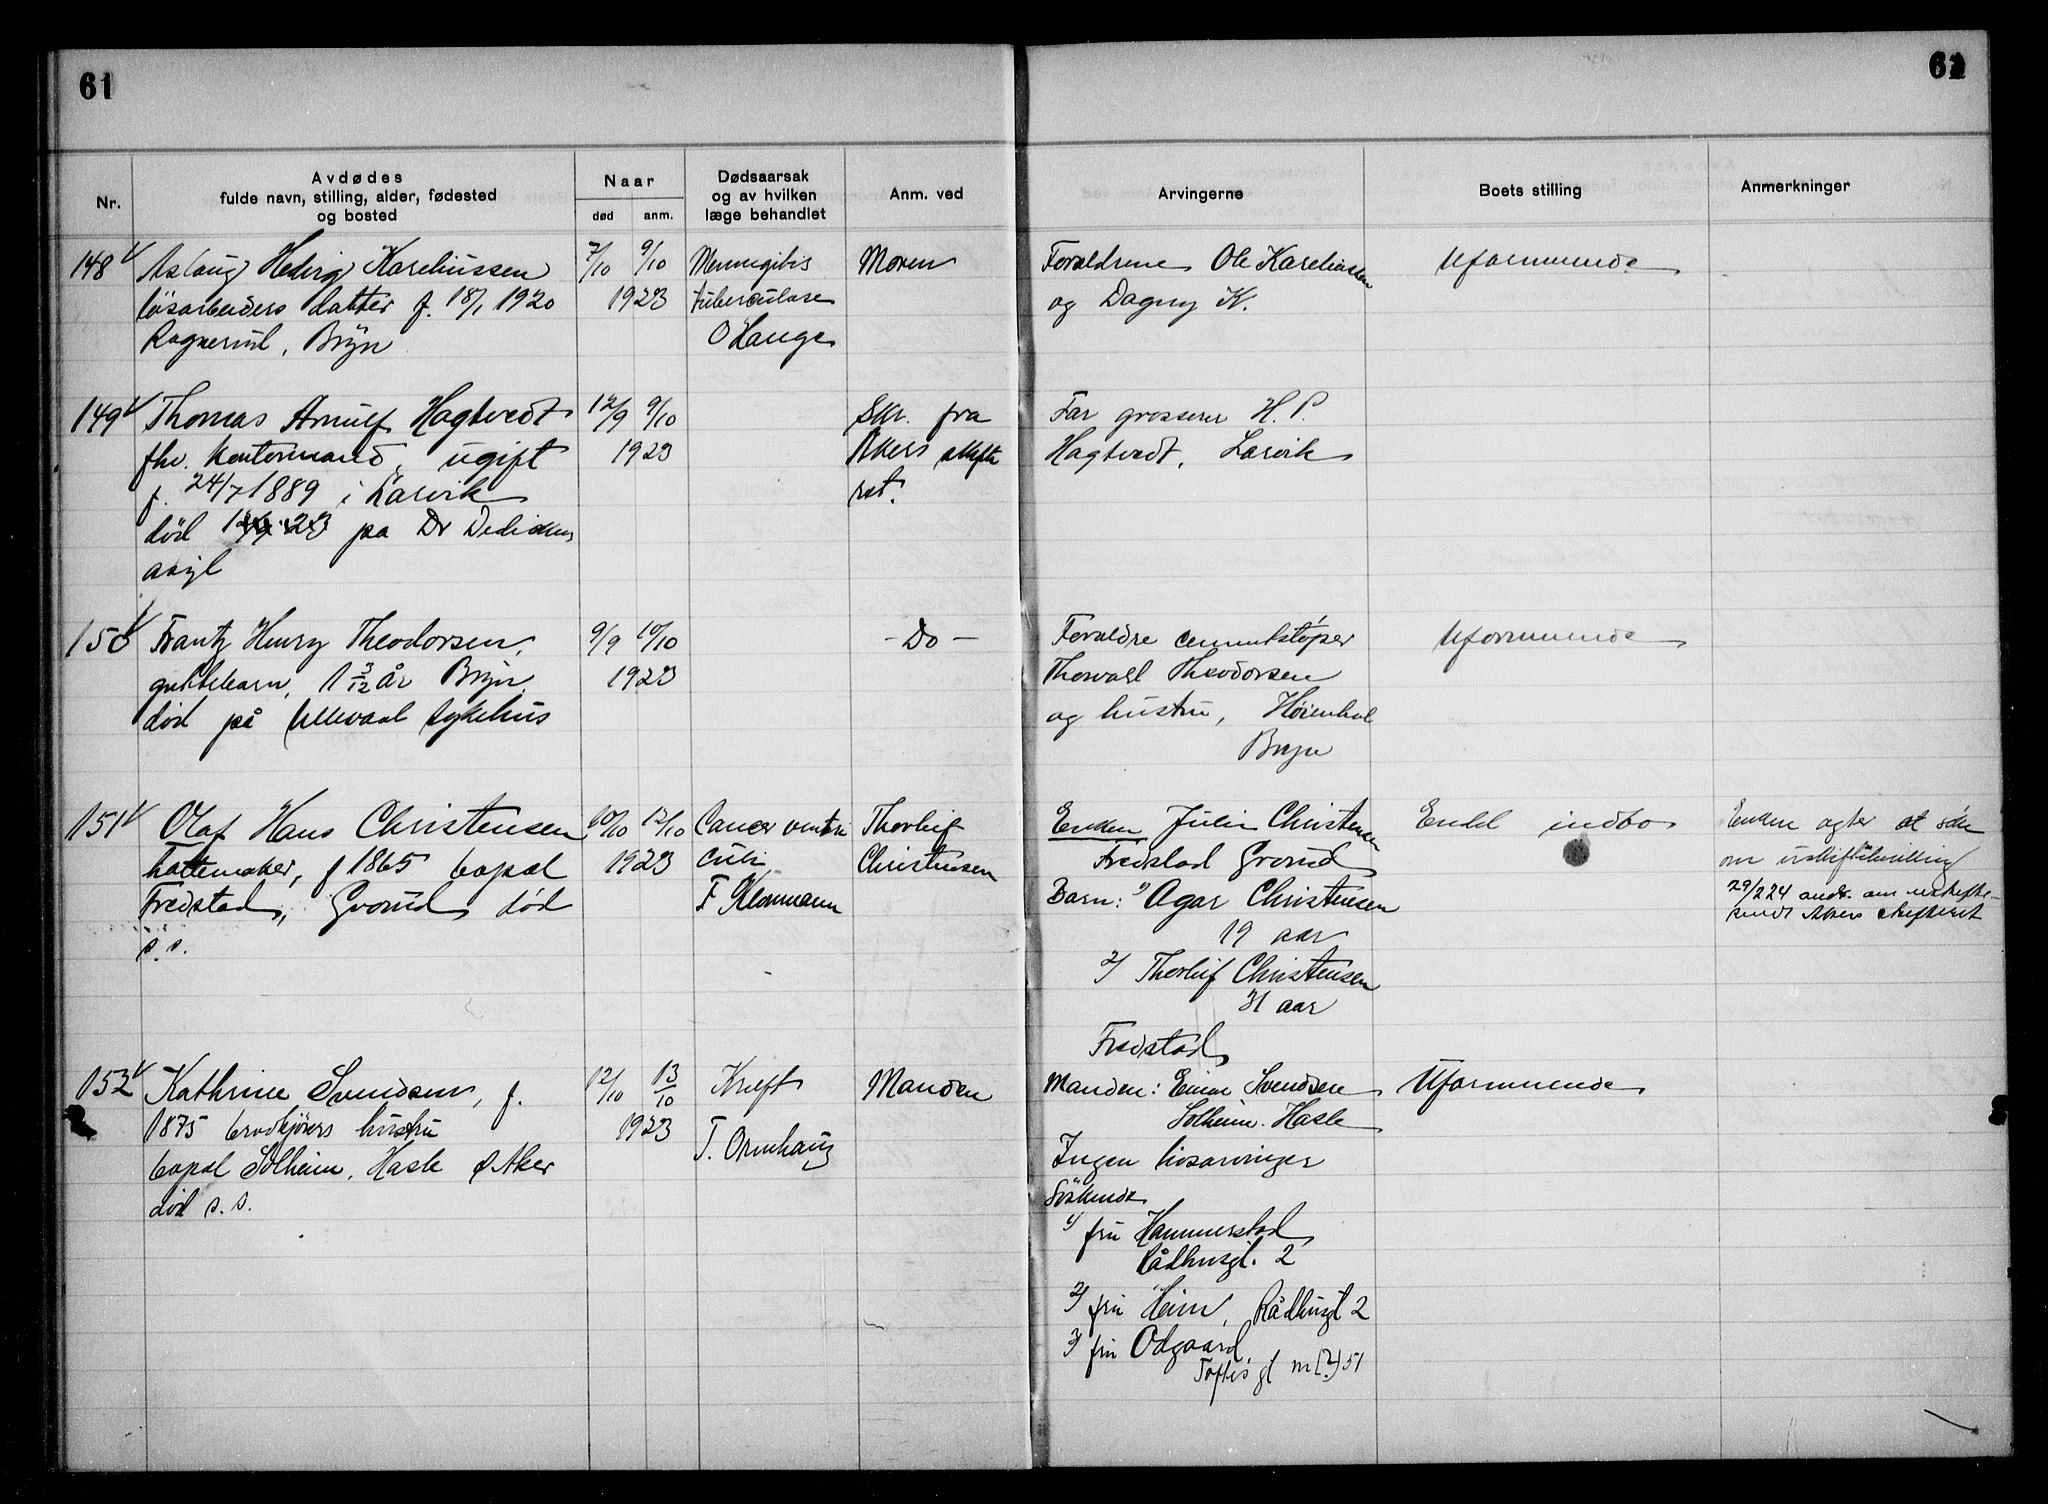 61
62
Nr.
Avdødes
fulde navn, stilling, alder, fødested
og bosted
Naar
død
anm.
Dødsaarsak
og av hvilken
læge behandlet
Anm. ved
Arvingerne
Boets stilling
Anmerkninger
148 Aslaug Hedvig Kareliussen
løsarbeiders datter f. 18/1 1920
Bryn
7/10 9/10
1923
Meningitis
tuberculose
O Hauge
Moren
Forældrene Ole Kareliussen
og Dagny K.
Uformuende
149 Thomas Arnulf Hagtvedt
fhv. kontormand, ugift
f. 24/7 1889 i Larvik
død 12/9 23 pa Dr Dedichens
asyl
12/9 9/10
1923
Skr. fra
Akers skifte
ret.
Far grosserer H. P.
Hagtvedt, Larvik
150 Frantz Henry Theodorsen,
guttebarn, 1 3/12 år Bryn
død på Ullevaal sykehus
9/9 10/10
1923
- Do -
Forældre cementstøper
Thorvall Theodorsen
og hustru, Høienhal
Bryn
Uformuende
151 Olaf Hans Christensen
hattemaker, f 1865 bopæl
Fredstad, Grorud død
s.s.
10/10 12/10
1923
Cancer ventri
culi
F Klonmann
Thorleif
Christensen
Enken Julie Christensen
Fredstad Grorud
Barn: 1) Agar Christensen
19 aar
2) Thorleif Christensen
31 aar
Fredstad
Endel indbo
Enken agter at söke
om uskiftebevilling
29/2 24 ands. om uskifte
sendt Akers skifteret
152 Kathrine Svendsen, f.
1875 brødkjørers hustru
bopæl Solheim, Hasle Ø Aker
død s.s.
12/10 13/10
1923
Kræft
T. Ormhaug
Manden
Manden: Einar Svendsen
Solheim. Hasle
Ingen livsarvinger
Söskende
1) fru Hammerstad
Rådhusgt. 2
2) fru Heim, Rådhusgt 2
3) fru Odgaard,
Toftes gt nr (?) 51
Uformuende